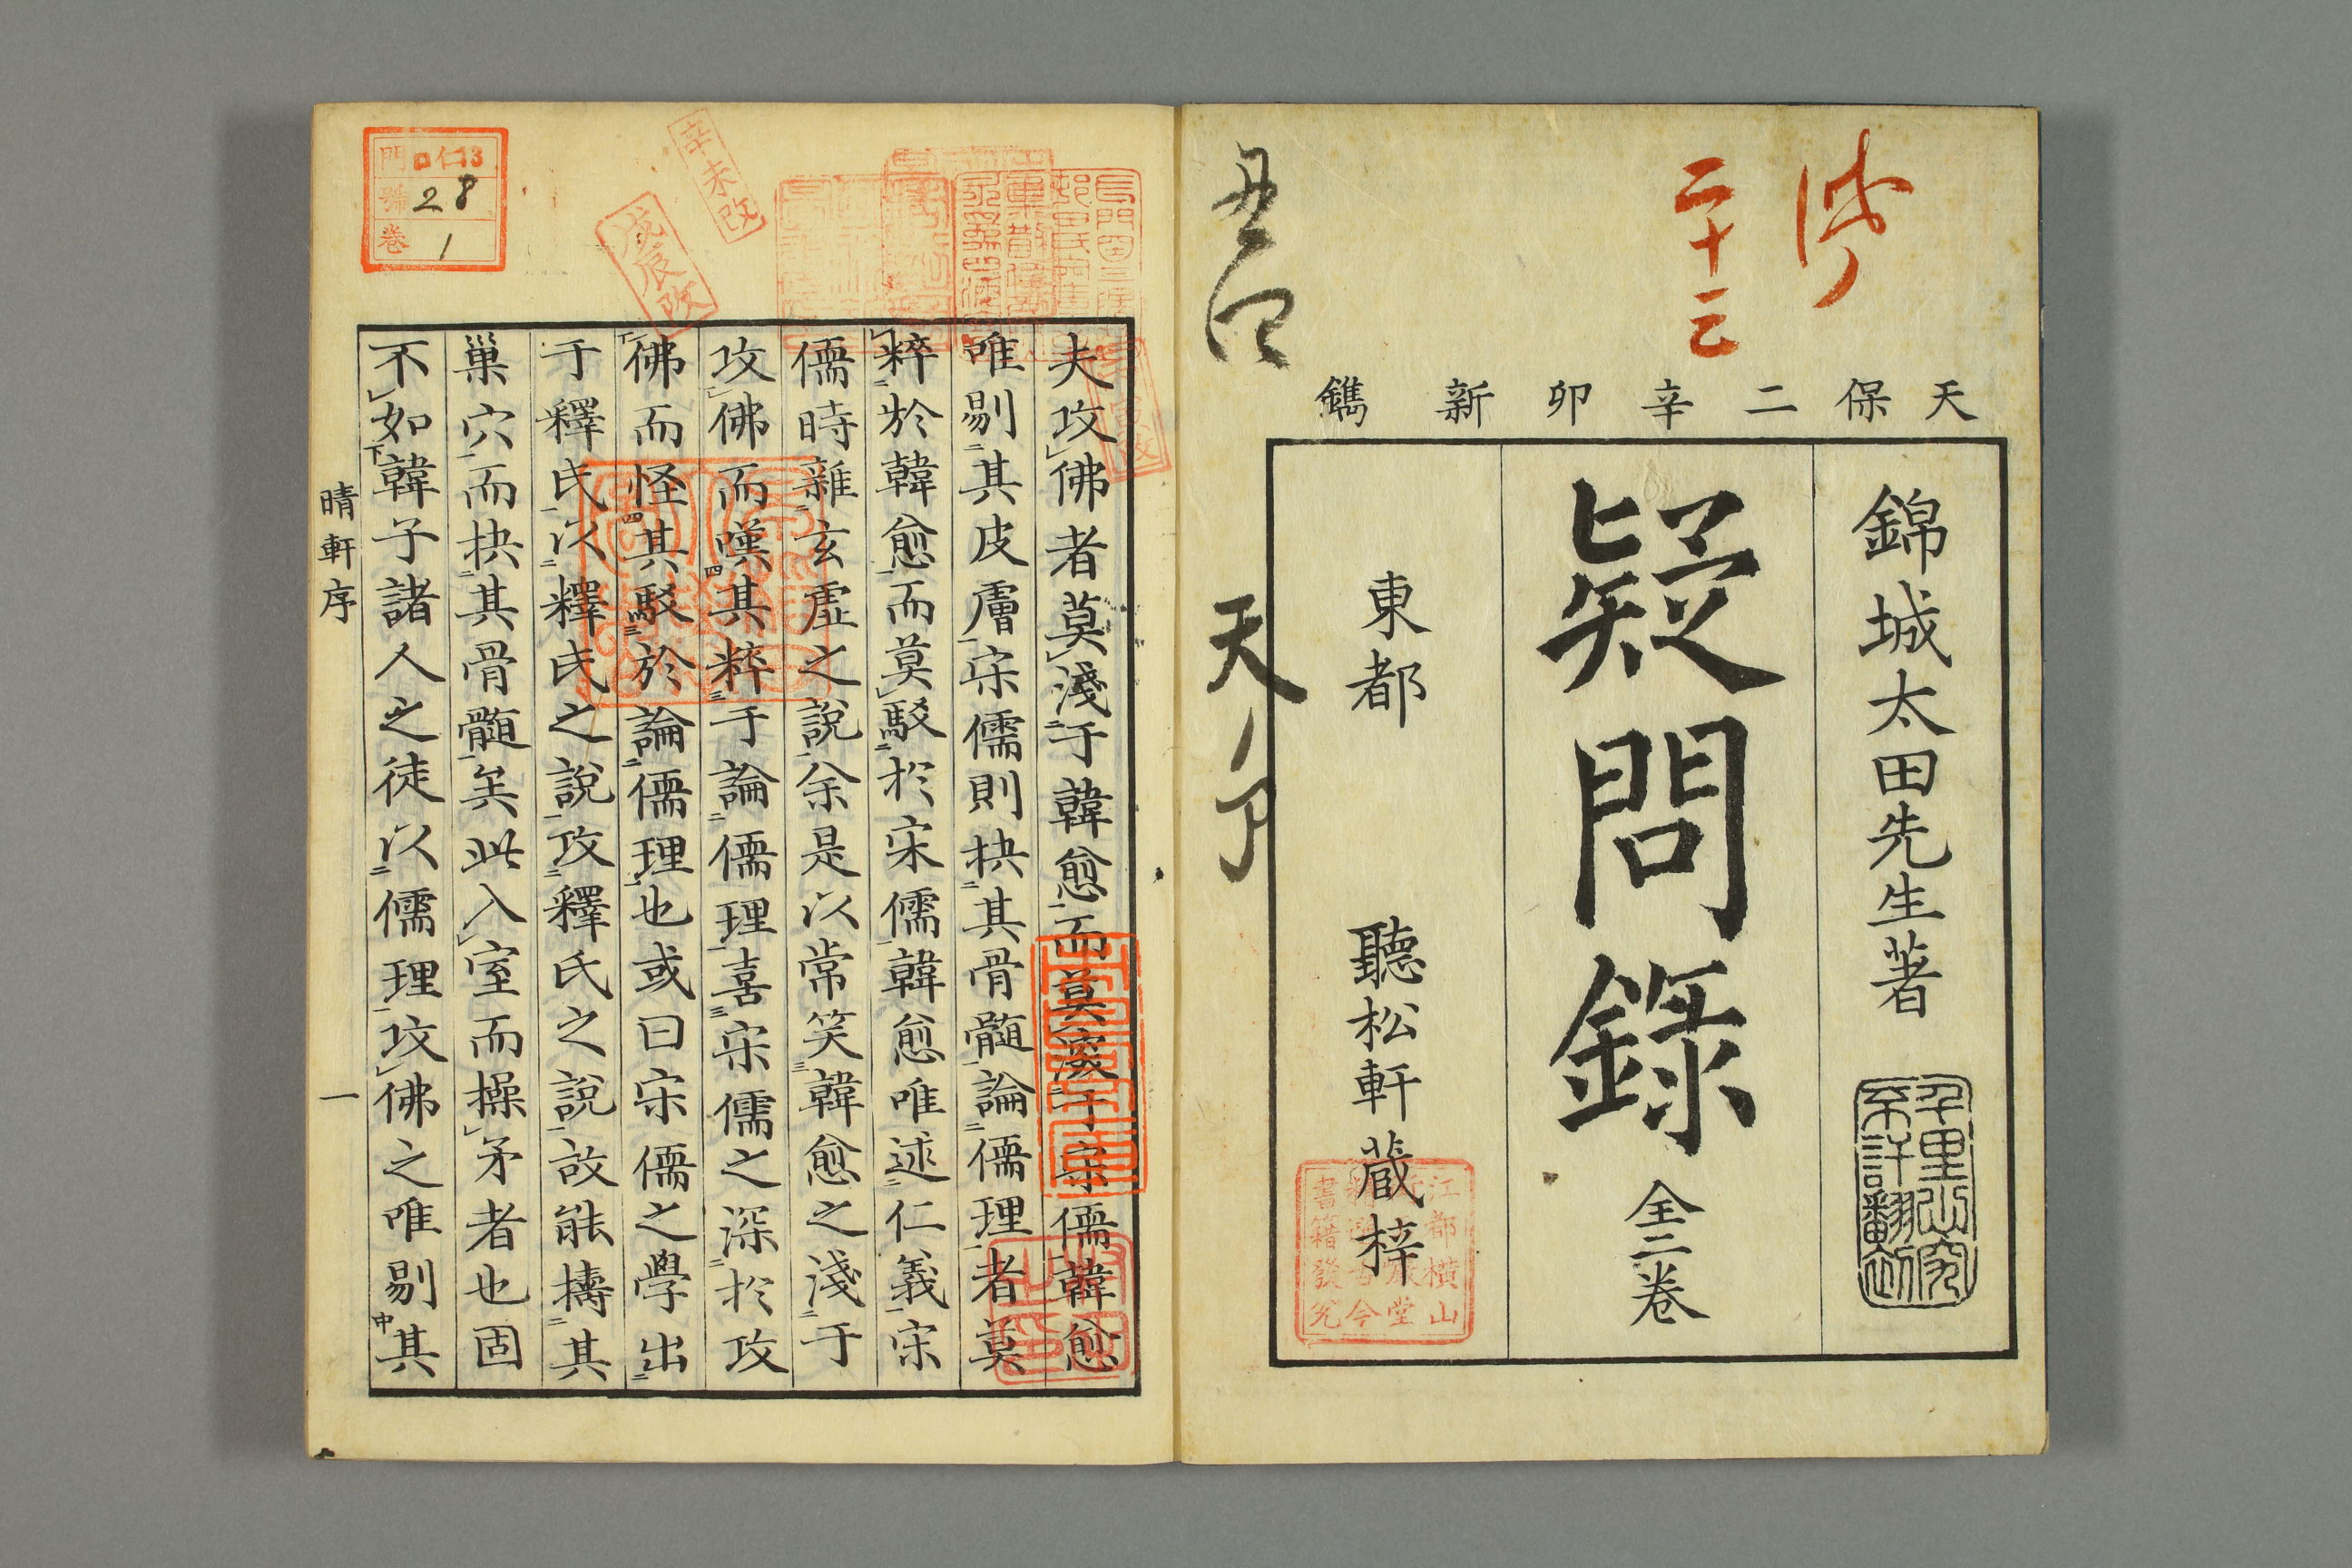 二十三
天保二辛卯新鐫
錦城太田先生著
千里必究
不許翻刻
疑問録
全二卷
東都 聽松軒蔵梓
江都横山
書籍發兌
夫攻佛者莫淺于韓愈而莫深于宋儒韓愈
唯剔其皮膚宋儒則抉其骨髓論儒理者莫
粹於韓愈而莫駁於宋儒韓愈唯述仁義宋
儒時雜玄虛之說余是以常笑韓愈之淺于
攻佛而嘆其粹于論儒理喜宋儒之深於攻
佛而怪其駁於論儒理也或曰宋儒之學出
于釋氏以釋氏之說攻釋氏之說故能擣其
巢穴而抉其骨髓矣此入室而操矛者也固
不如韓子諸人之徒以儒理攻佛之唯剔其
晴軒序 一
辛未改
戊辰改
門 仁13
號 28
卷 1